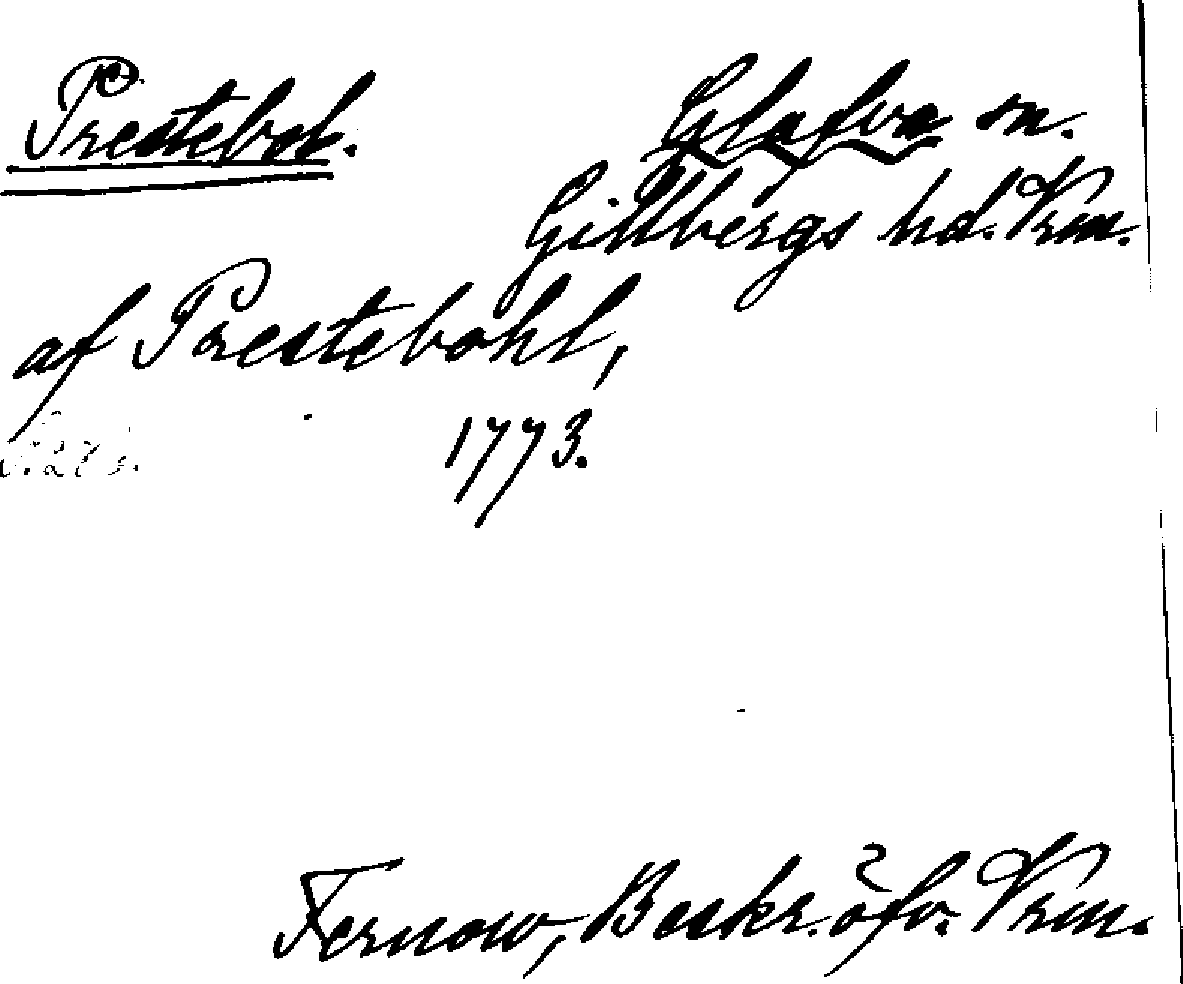 Prestebol.
Glafva sn.
Gillbergs hd. Vrm.
af Prestebohl,
1773.
Fernow, Beskr. öfv. Vrm.